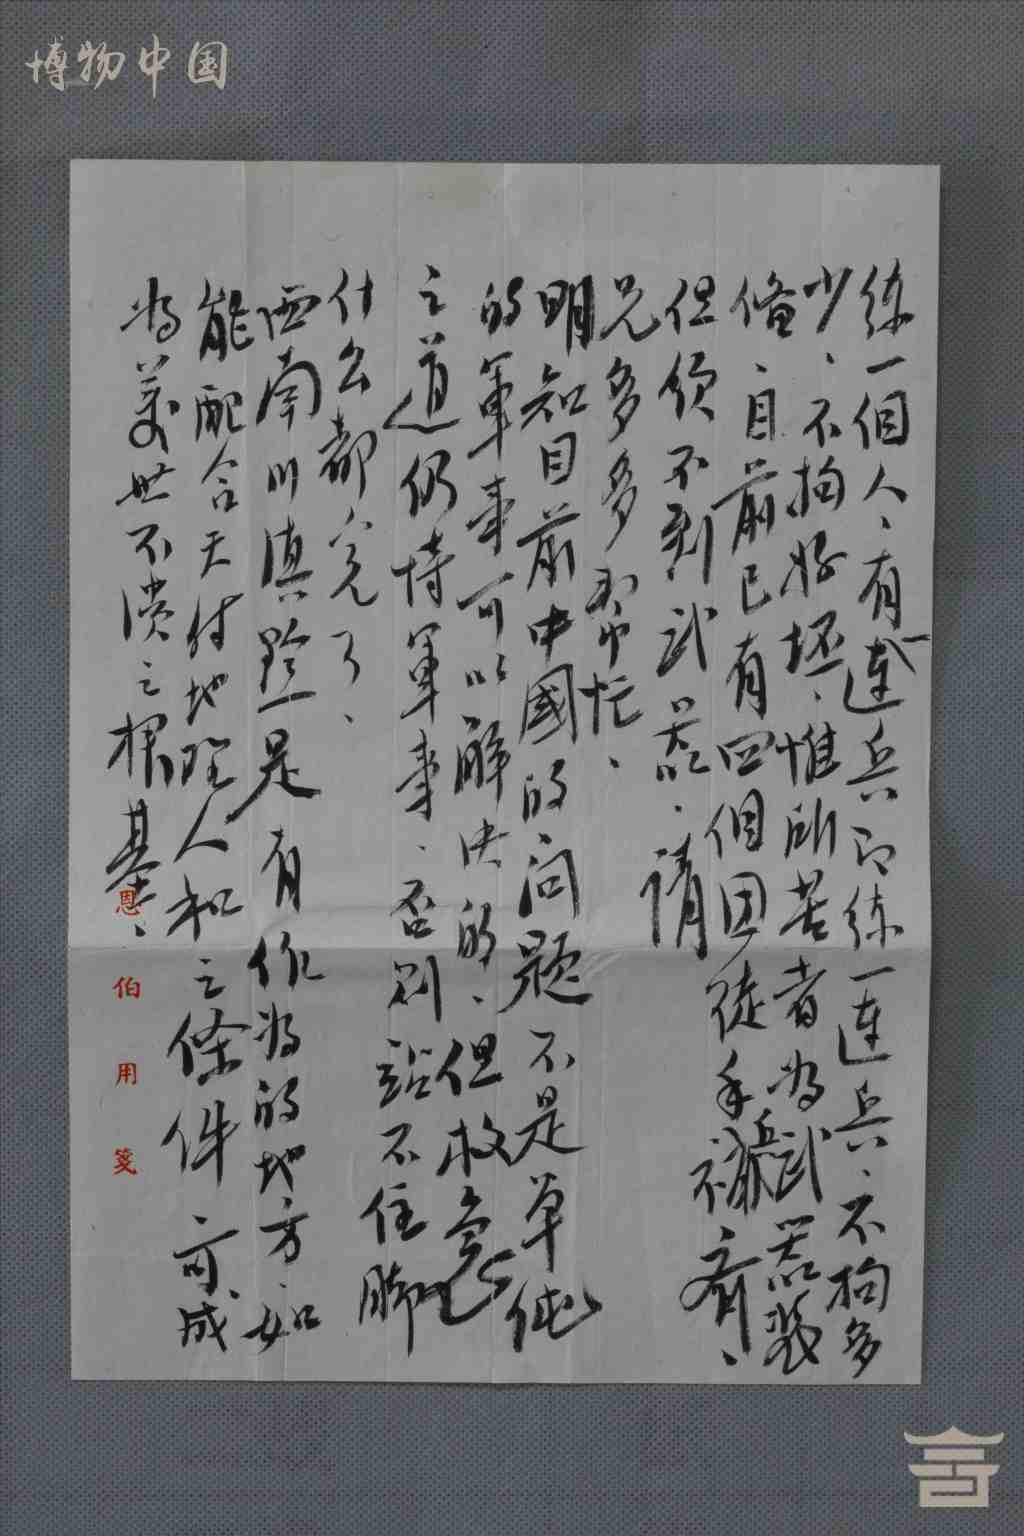 博物中国
练一個人、有一連兵即练一連兵、不拘多
少、不拘好坏、惟所苦者为武器裝
備、目前已有四個团徒手兵不齐、
但领不到武器、请
兄多多帮忙、
明知目前中國的问题不是单纯
的軍事可以解决的、但救急
之道仍恃軍事、否则站不住脚
什么都完了、
西南川滇黔是有作为的地方、如
能配合天时地理人和之條件、可成
为万世不溃之根基、
恩伯用笺